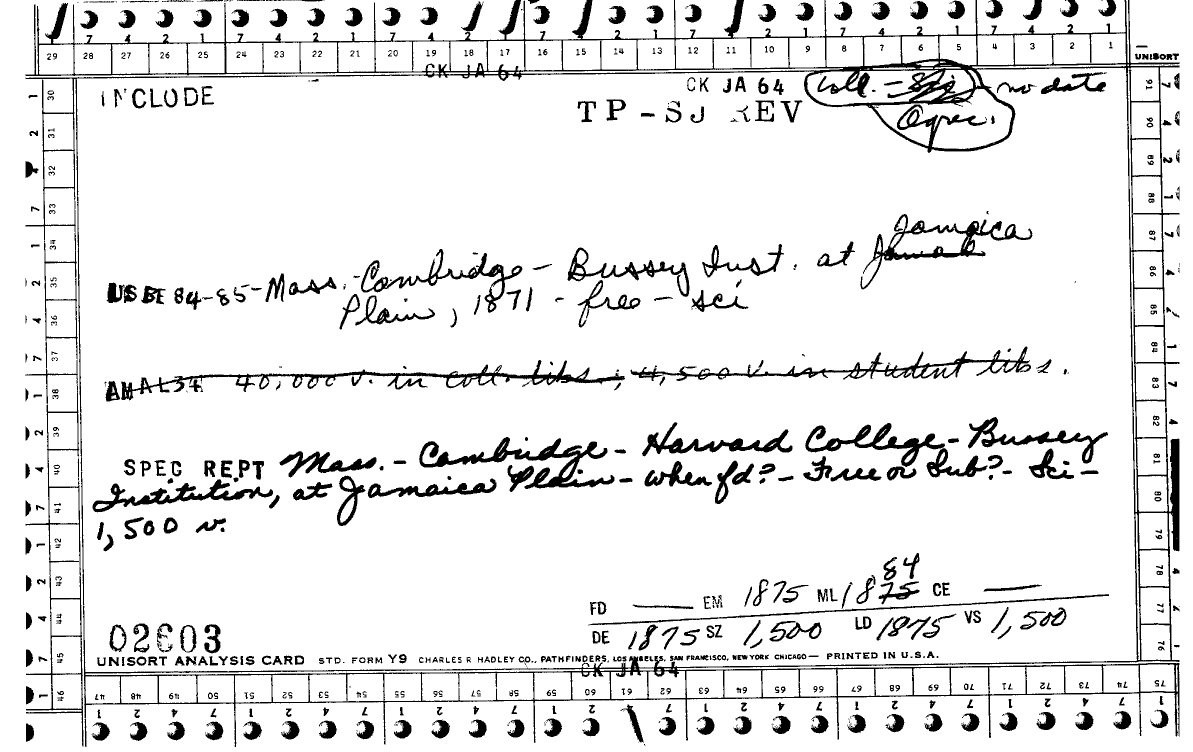 7 4 2 1 7 4 2 1 7 4 2 1 7 4 2 1 7 4 2 1 7 4 2 1 7 4 2 1
29 28 27 26 25 24 23 22 21 20 19 18 17 16 15 14 13 12 11 10 9 8 7 6 5 4 3 2 1
UNISORT
CK JA 64
INCLUDE
CK JA 64 Coll. - - no date
TP-SJ REV Agric.
Jamaica
US BE 84-85-Mass.-Cambridge - Bussey Inst. at
Plain, 1871 - free - sci
AM AL34 40,000 v. in coll. libs.; 4,500 v. in student libs.
SPEC REPT Mass. - Cambridge - Harvard College - Bussey
Institution, at Jamaica Plain - when fd? - Free or Sub? - Sci -
1,500 v.
84
FD — EM 1875 ML 1875 CE —
DE 1875 SZ 1,500 LD 1875 VS 1,500
02603
UNISORT ANALYSIS CARD STD. FORM Y9 CHARLES R HADLEY CO., PATHFINDERS, LOS ANGELES, SAN FRANCISCO, NEW YORK CHICAGO — PRINTED IN U.S.A.
CK JA 64
30 31 32 33 34 35 36 37 38 39 40 41 42 43 44 45 46
47 48 49 50 51 52 53 54 55 56 57 58 59 60 61 62 63 64 65 66 67 68 69 70 71 72 73 74 75
76 77 78 79 80 81 82 83 84 85 86 87 88 89 90 91